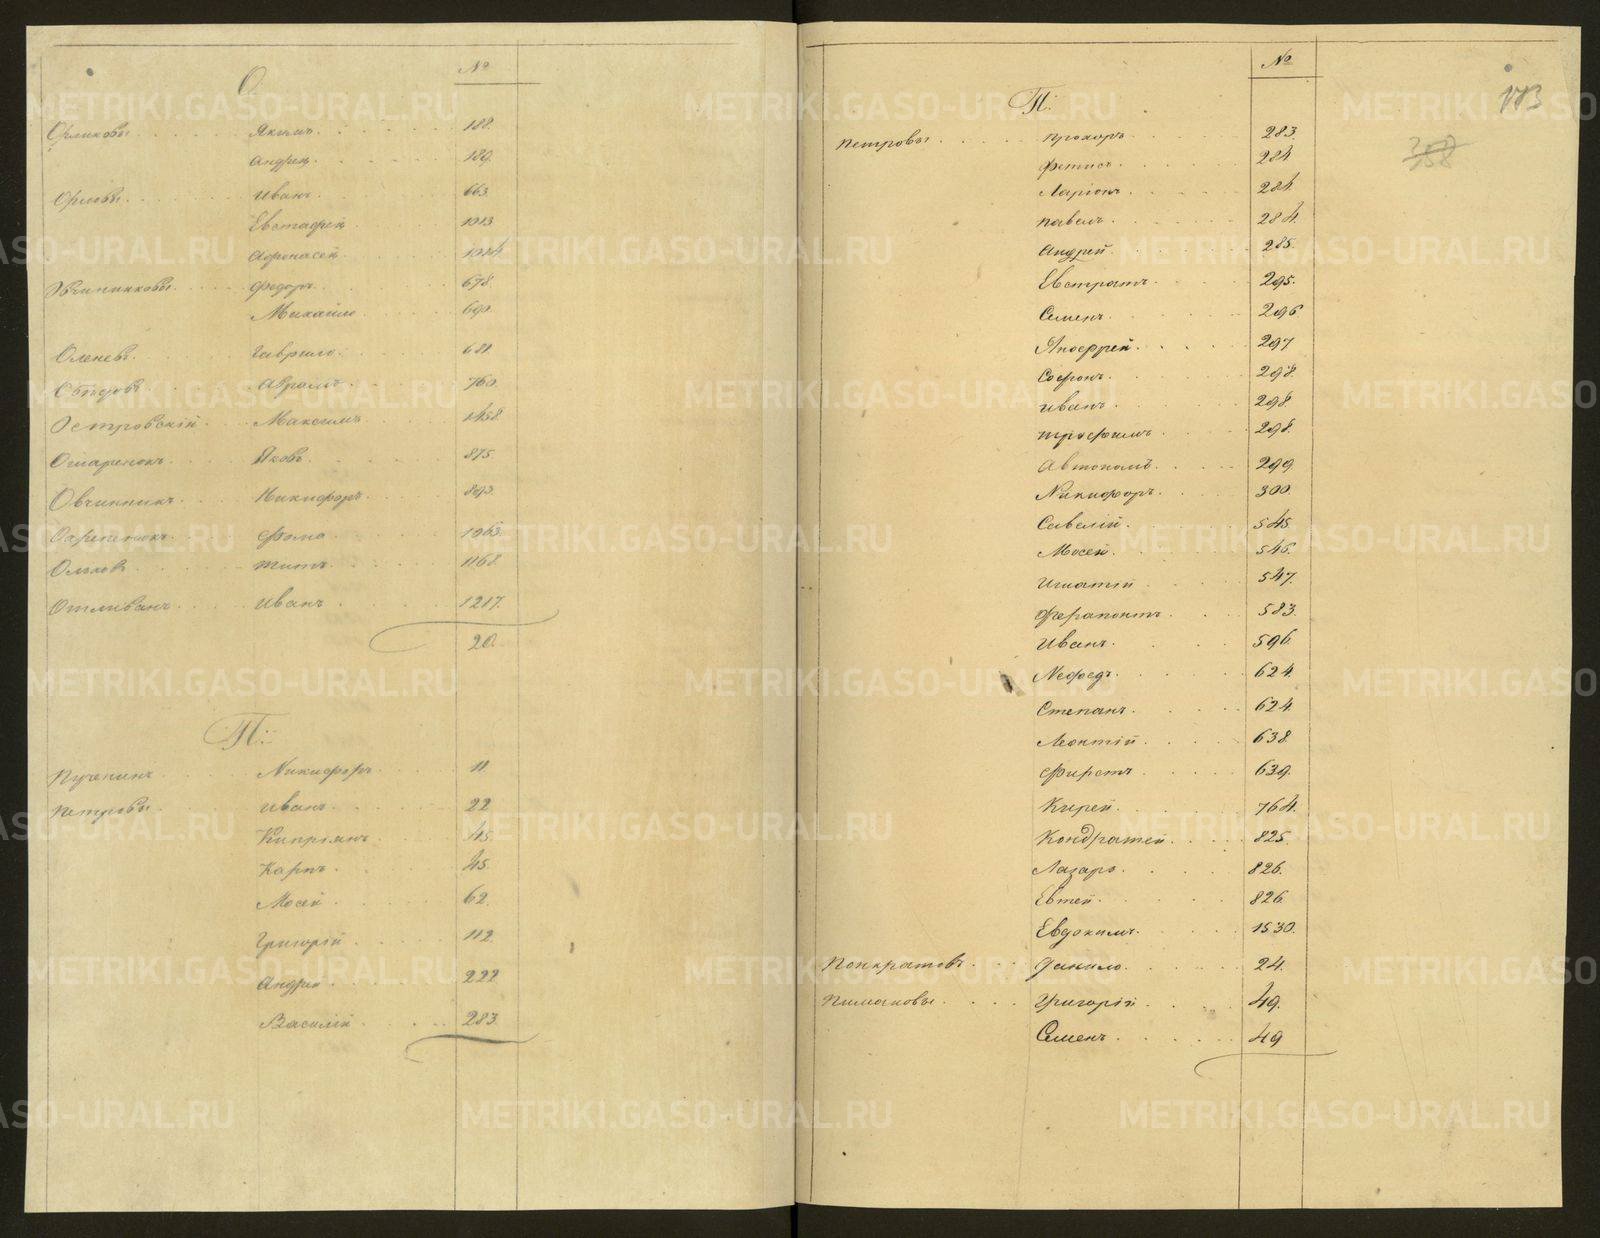 О
№
Орликовы Якимъ 188.
Андрей 189.
Орловы Иванъ 663.
Евстафей 1013
Афонасей 1014.
Овчинниковы Федоръ 678.
Михайло 690.
Оленевъ Гаврило 681.
Абрамъ 760.
Островскій Максимъ 1458.
Яковъ 875.
Овчинникъ Никифоръ 893.
Фома 1063.
Титъ 1168.
Отливанъ Иванъ 1217.
20.
П:
Пученинъ Никифоръ 11.
Петровы Иванъ 22
Кипріянъ 45.
Карпъ 45.
Мосей 62.
Григорій 112.
Андрей 222
Василій 283.
№
173
П:
358
Петровы Прохоръ 283.
Фетисъ 284
Ларіонъ 284.
Павелъ 284.
Андрей 285.
Евстратъ 295.
Семенъ 296
297
Софронъ 298.
Иванъ 298.
Трофимъ 298.
Автономъ 299
Никифоръ 300.
Савелій 545.
Мосей 546.
Игнатій 547.
Ферапонтъ 583.
Иванъ 596.
Нефедъ 624.
Степанъ 624.
Леонтій 638.
Фирстъ 639.
Кирей 764.
Кондратей 825.
Лазарь 826.
Евтей 826.
Евдокимъ 1530.
Понкратовъ Данило 24.
Пимановы Григорій 49.
Семенъ 49
METRIKI.GASO-URAL.RU